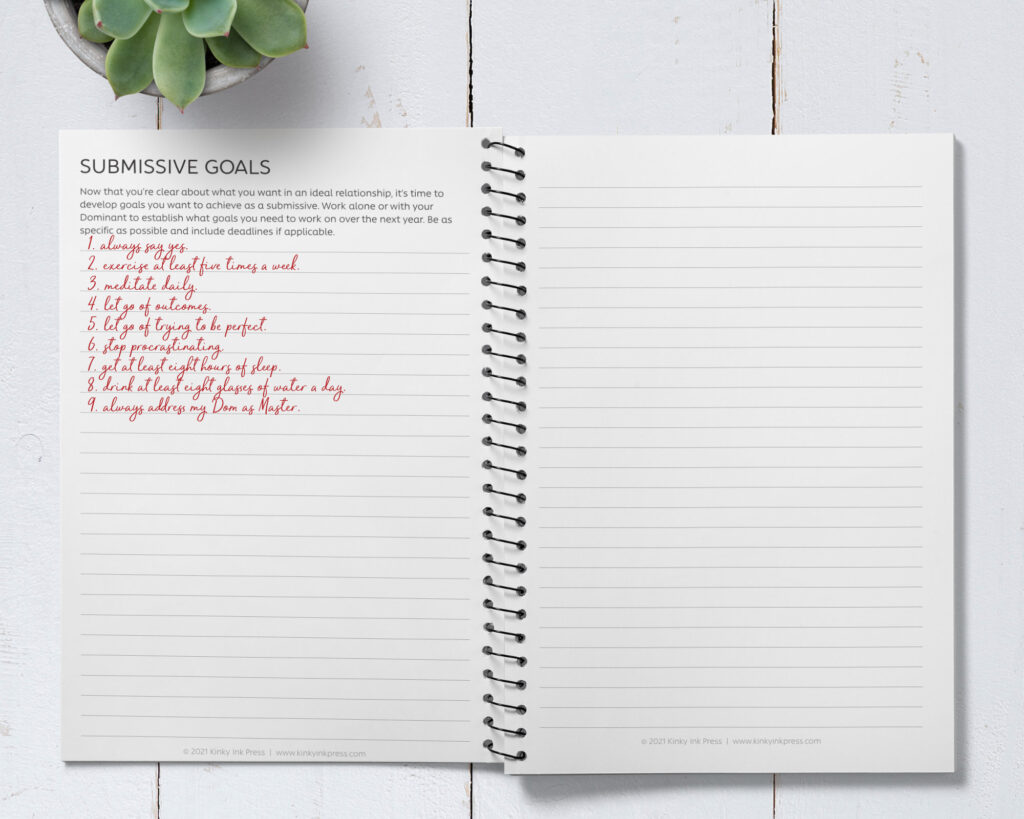 SUBMISSIVE GOALS
Now that you're clear about what you want in an ideal relationship, it's time to
develop goals you want to achieve as a submissive. Work alone or with your
Dominant to establish what goals you need to work on over the next year. Be as
specific as possible and include deadlines if applicable.
1. always say yes.
2. exercise at least five times a week.
3. meditate daily.
4. let go of outcomes.
5. let go of trying to be perfect.
6. stop procrastinating.
7. get at least eight hours of sleep.
8. drink at least eight glasses of water a day.
9. always address my Dom as Master.
© 2021 Kinky Ink Press | www.kinkyinkpress.com
© 2021 Kinky Ink Press | www.kinkyinkpress.com